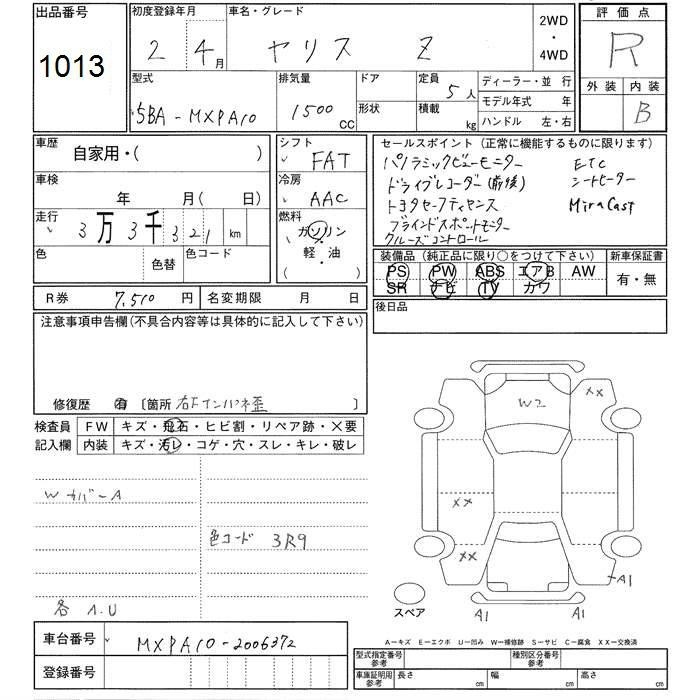 出品番号
1013
初度登録年月
2 4月
車名・グレード
ヤリス Z
2WD
・
4WD
評価点
R
外装 内装
B
型式
5BA-MXPA10
排気量
1500 CC
ドア
形状
定員
5人
積載 kg
ディーラー・並 行
モデル年式 年
ハンドル 左・右
車歴
自家用・( )
車検
年 月(日)
走行
3万3千321 km
色 色替
色コード
シフト
FAT
冷房
AAC
燃料
ガソリン
・
軽・油
( )
セールスポイント (正常に機能するものに限ります)
パノラミックビューモニター ETC
ドライブレコーダー(前後) シートヒーター
トヨタセーフティセンス MiraCast
ブラインドスポットモニター
クルーズコントロール
装備品 (純正品に限り○をつけて下さい)
PS PW ABS エアB AW
SR ナビ TV カワ
新車保証書
有・無
R券 7,510円
名変期限 月 日
後日品
注意事項申告欄(不具合内容等は具体的に記入して下さい)
修復歴 有 〔箇所 右Fインパネ歪
検査員
記入欄
FW キズ・飛石・ヒビ割・リペア跡・×要
内装 キズ・汚レ・コゲ・穴・スレ・キレ・破レ
Wカバー A
色コード 3R9
各 A.U
W2
XX
XX
XX
A1
A1
A1
スペア
A−キズ E−エクボ U−凹み W−補修跡 S−サビ C−腐食 XX−交換済
車台番号 MXPA10-2006372
登録番号
型式指定番号
参考
種別区分番号
参考
車庫証明用
参考
長さ cm 幅 cm 高さ cm